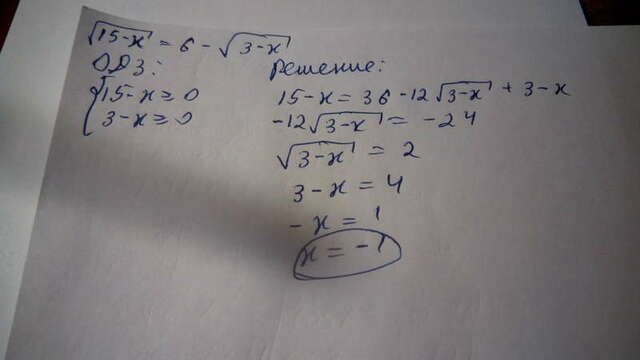 √15-x = 6 - √3-x
ОДЗ:
{15-x ≥ 0
3-x ≥ 0
Решение:
15-x = 36 - 12√3-x + 3-x
-12√3-x = -24
√3-x = 2
3-x = 4
-x = 1
x = -1